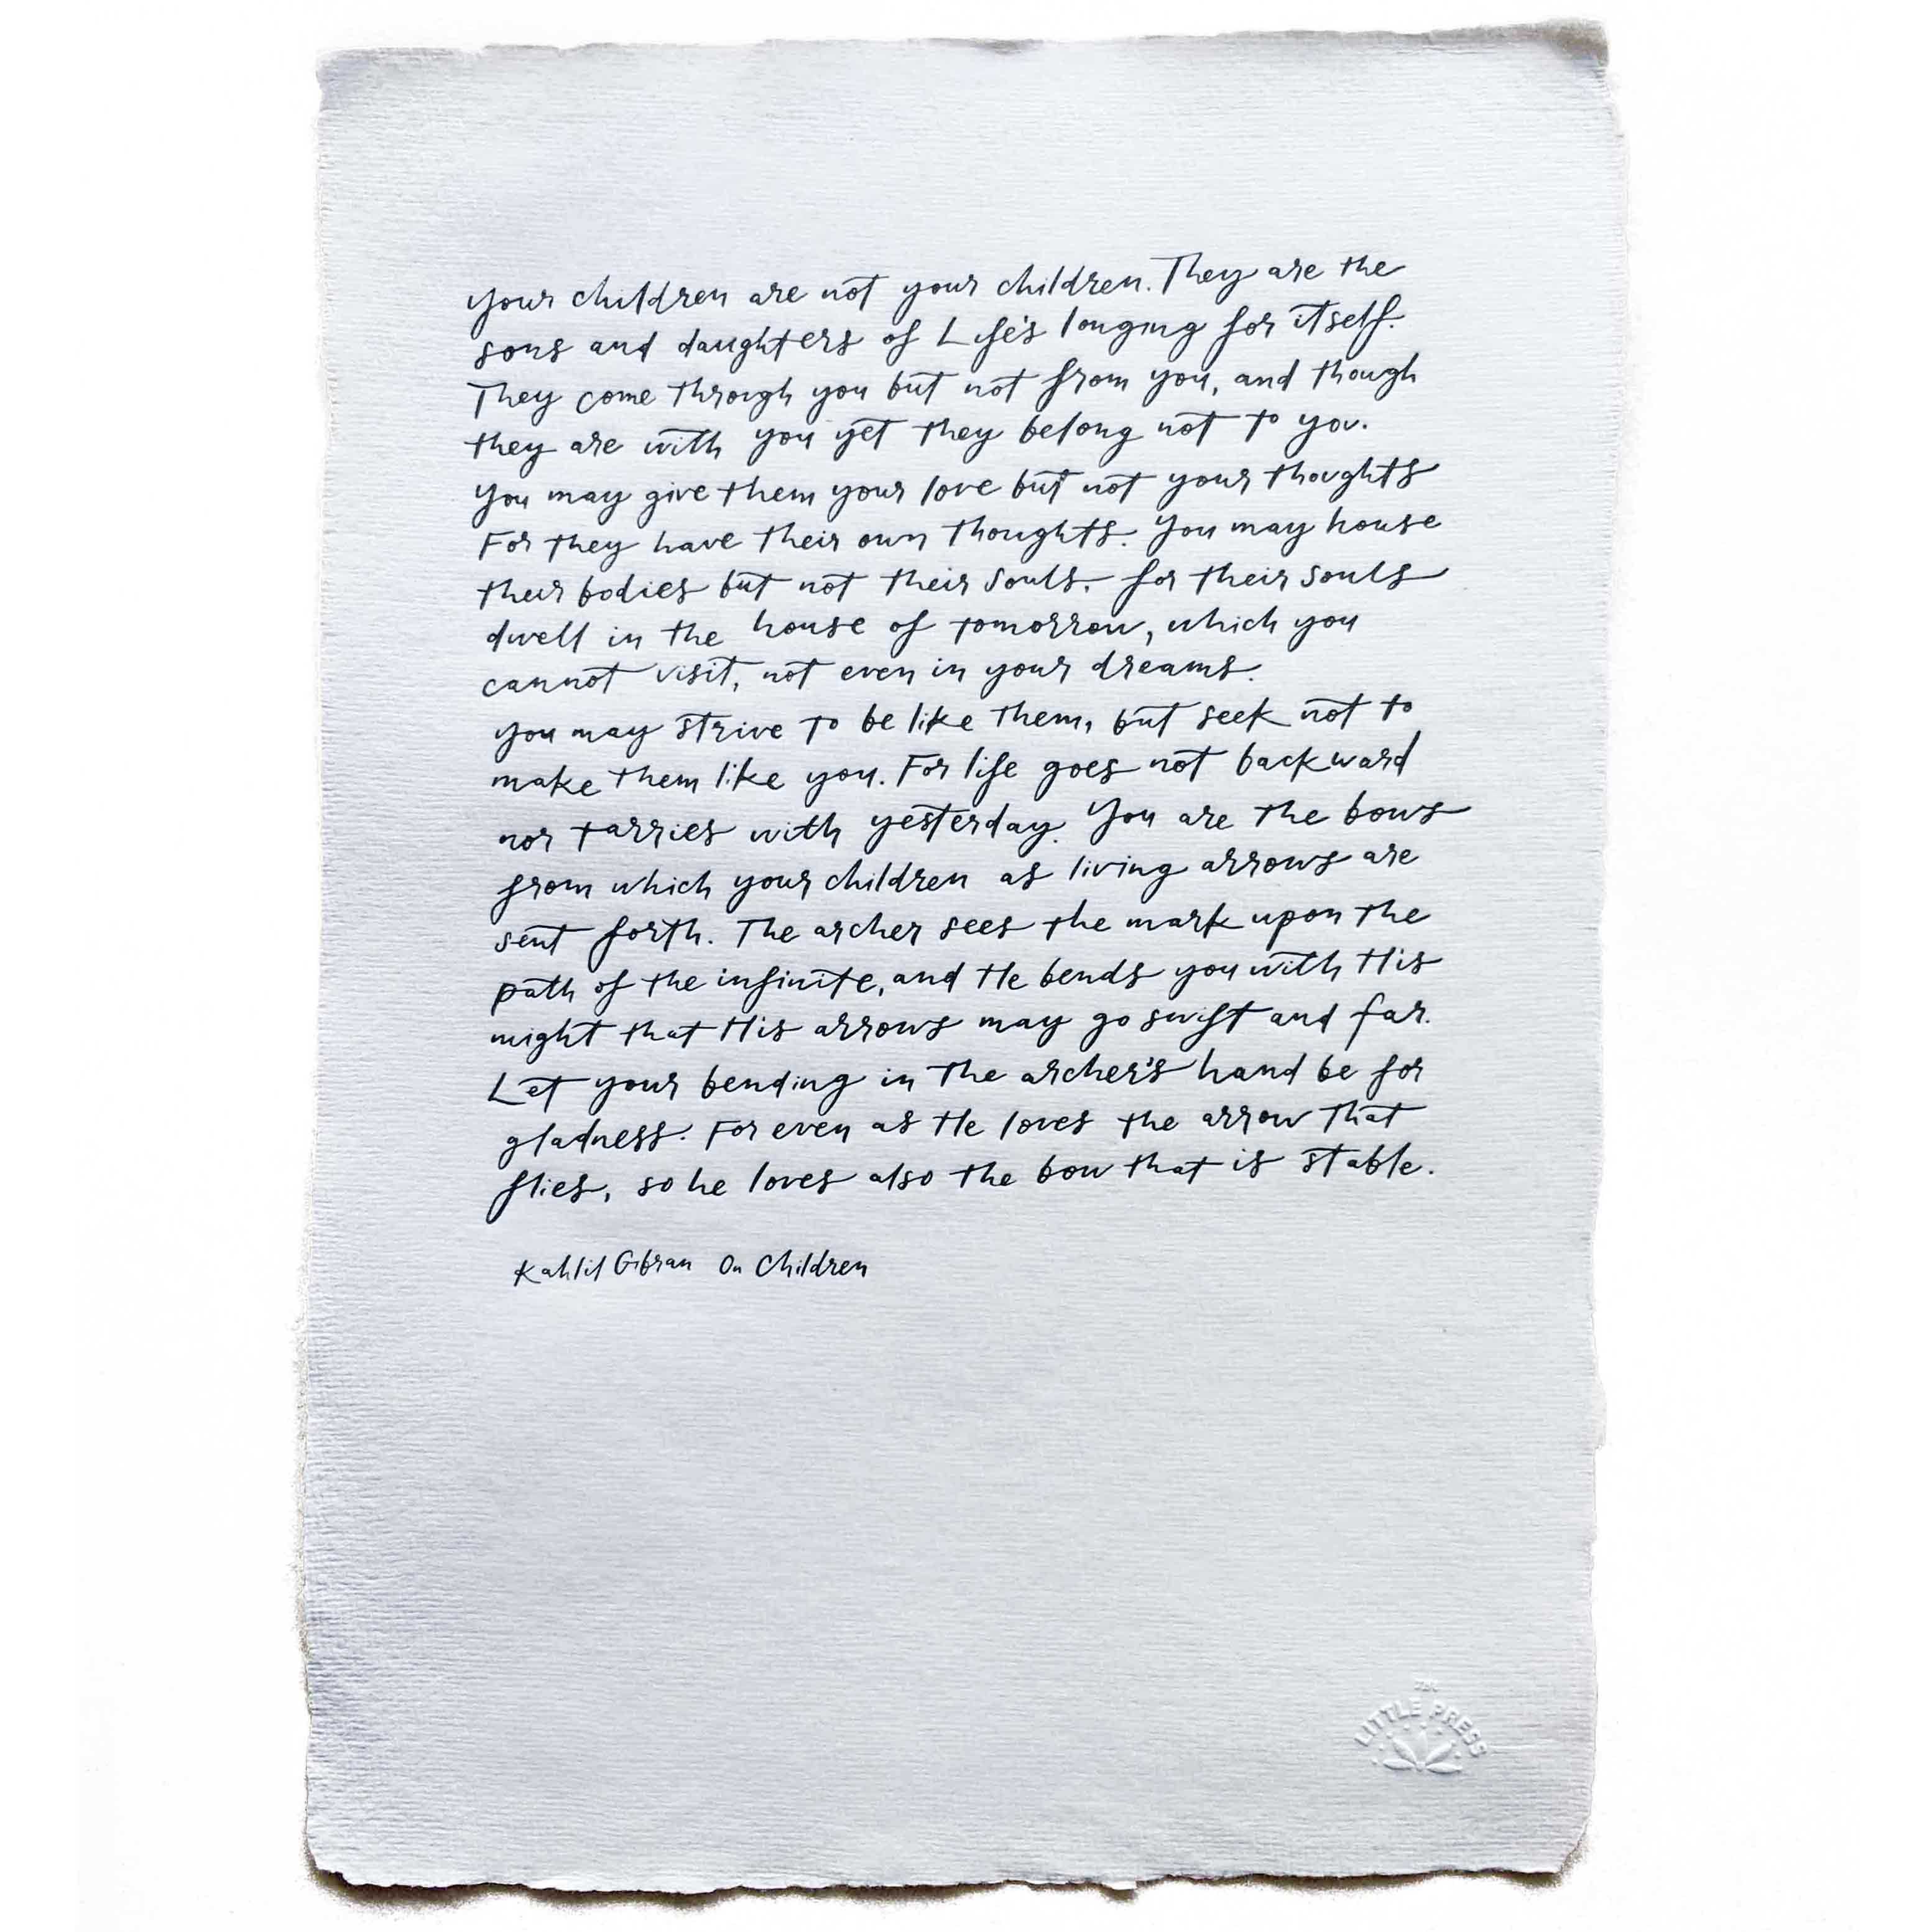 Your children are not your children. They are the
sons and daughters of Life's longing for itself.
They come through you but not from you, and though
they are with you yet they belong not to you.
You may give them your love but not your thoughts
For they have their own thoughts. You may house
their bodies but not their souls. for their souls
dwell in the house of tomorrow, which you
cannot visit, not even in your dreams.
you may strive to be like them, but seek not to
make them like you. For life goes not backward
nor tarries with yesterday. You are the bows
from which your children as living arrows are
sent forth. The archer sees the mark upon the
path of the infinite, and He bends you with His
might that His arrows may go swift and far.
Let your bending in the archer's hand be for
gladness. For even as He loves the arrow that
flies, so he loves also the bow that is stable.
Kahlil Gibran On Children
THE
LITTLE PRESS